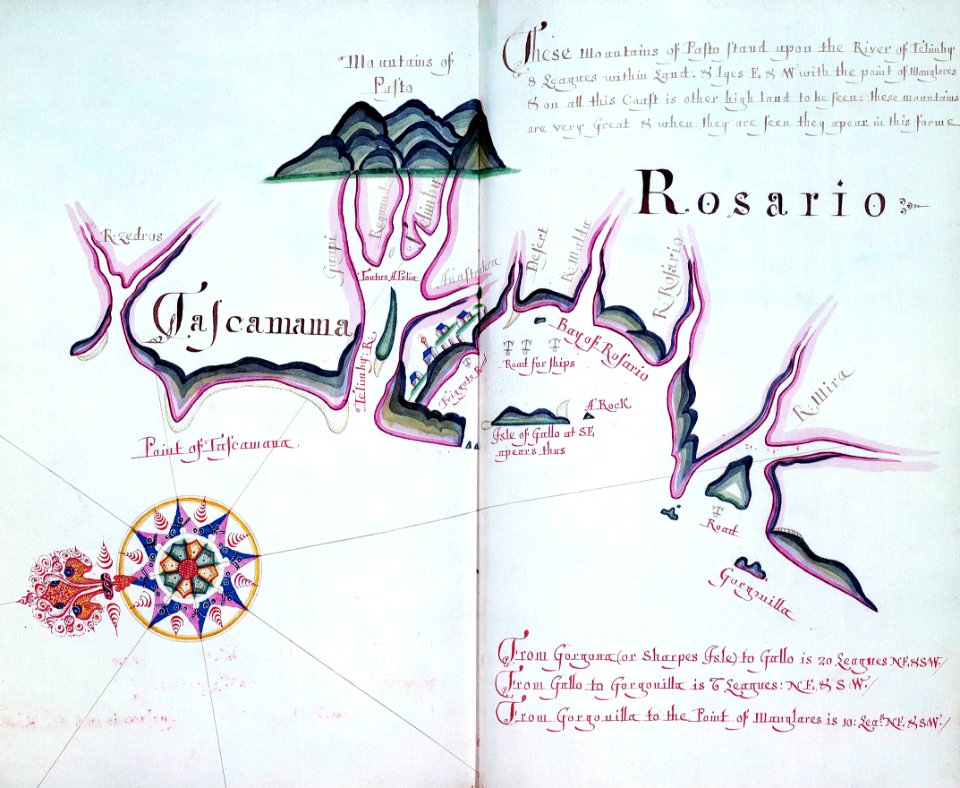 Mountains of
Pasto
These Mountains of Pasto stand upon the River of Telimby
8 Leagues within Land. & lyes E. & W with the point of Manglares
& on all this Coast is other high land to be seen: these mountains
are very Great & when they are seen they apear in this forme
Rosario
R: zedros
Telimby
Desert
R. Rosario
Tascamama
Telimby R.
Bay of Rosario
Road for ships
Friggots Road
R: Mira
A Rock
Isle of Gallo at SE
apears thus
Point of Tascamana.
Road
Gorgonilla
From Gorgona (or Sharpes Isle) to Gallo is 20 Leagues NE. & SW./
From Gallo to Gorgonilla is 6 Leagues: NE. & SW./
From Gorgonilla to the Point of Manglares is 10: Leags NE. & SW./